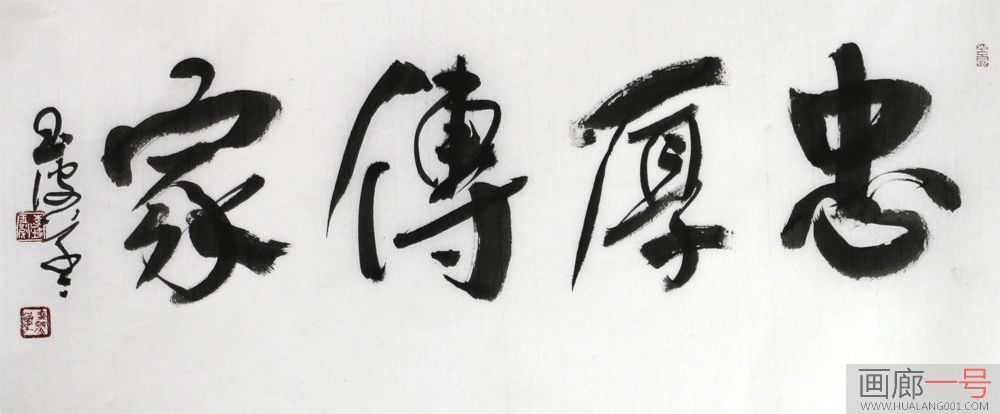 忠厚傳家
玉波書
画廊一号
WWW.HUALANG001.COM